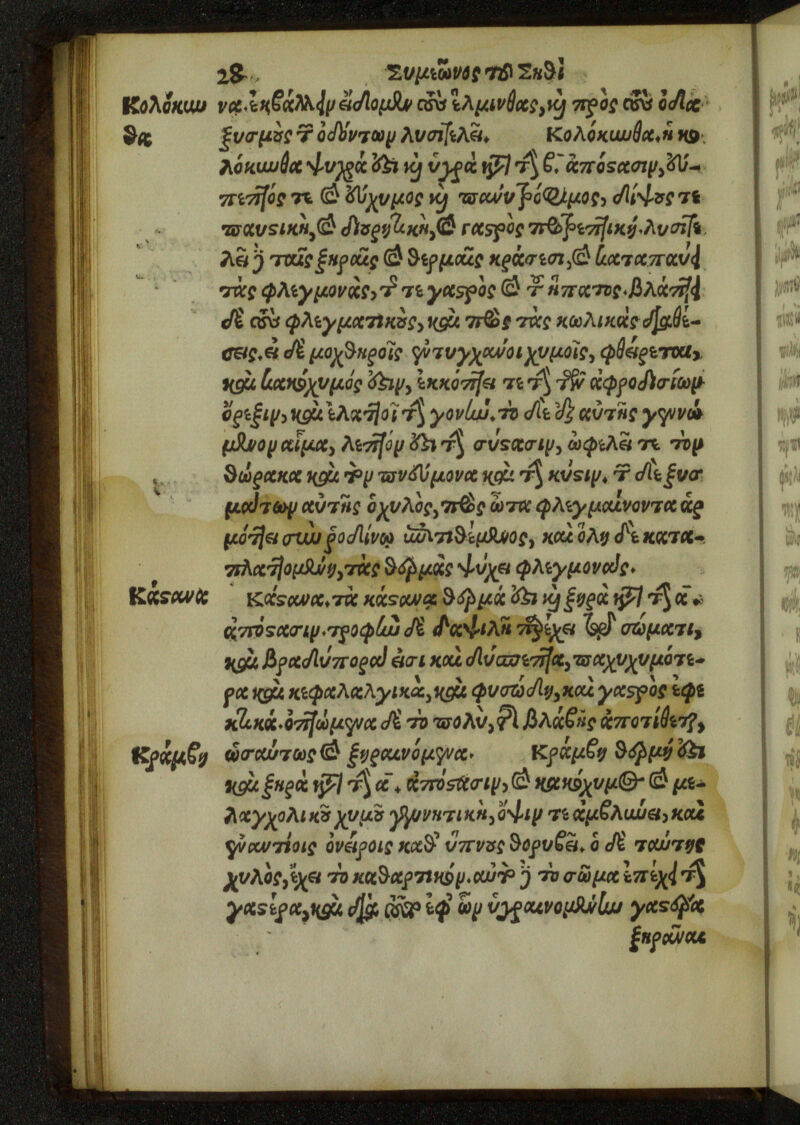 28 Συμεῶνος τοῦ Σηθὶ
Κολόκυν να. ἐκβάλλειν εἰδομεν τοὺς ἕλμινθας, καὶ πρὸς τοὺς ὁδα
θα ξυσμοὺς τῶν ὀδόντων λυσιτελεῖ. Κολόκυνθα. ἡ κο
λόκυνθα ψυχρά ἐστι καὶ ὑγρὰ κατὰ τὴν β. ἀπόστασιν, εὔ-
πεπτός τε καὶ εὔχυμος καὶ παυροτρόφιμος, δίψους τε
παυστικὴ, καὶ διουρητικὴ, καὶ γαστρὸς προτρεπτική. λυσιτε
λεῖ δὲ ταῖς ξηραῖς καὶ θερμαῖς κράσεσι, καὶ καταπαύει
τὰς φλεγμονὰς, τῆς τε γαστρὸς καὶ τοῦ ἥπατος. βλάπτει
δὲ τοὺς φλεγματικοὺς, καὶ πρὸς τὰς κωλικὰς διαθέ-
σεις. εἰ δὲ μοχθηροῖς ἐντυγχάνοι χυμοῖς, φθείρεται,
καὶ κακόχυμός ἐστιν, ἐκκόπτει τε τὴν τῶν ἀφροδισίων
ὄρεξιν, καὶ ἐλαττοῖ τὴν γονήν. τὸ δὲ ἐξ αὐτῆς γεννώ
μενον αἷμα, λεπτόν ἐστι τὴν σύστασιν, ὠφελεῖ τε τὸν
θώρακα καὶ τὸν πνεύμονα καὶ τὴν κύστιν. τῶν δὲ ξυσ
μάτων αὐτῆς ὁ χυλὸς, πρὸς ὦτα φλεγμαίνοντα ἁρ
μόττει σὺν ῥοδίνῳ ἐπιτιθέμενος, καὶ ὅλη δὲ κατα-
πλαττομένη, τὰς θερμὰς ψύχει φλεγμονάς.
Κάστανα Κάστανα. τὰ κάστανα θερμά ἐστι καὶ ξηρὰ κατὰ τὴν α.
ἀπόστασιν. τροφὴν δὲ δαψιλῆ παρέχει τῷ σώματι,
καὶ βραδύπορα εἰσι καὶ δύσπεπτα, παχυχυμότε-
ρα καὶ κεφαλαλγικὰ, καὶ φυσώδη, καὶ γαστρὸς ἐφε
κτικά. ὀπτώμενα δὲ τὸ πολὺ, τῆς βλάβης ἀποτίθεται,
Κράμβη ὡσαύτως καὶ ξηραινόμενα. Κράμβη θερμή ἐστι
καὶ ξηρὰ κατὰ τὴν α. ἀπόστασιν, καὶ κακόχυμος καὶ με-
λαγχολικοῦ χυμοῦ γεννητικὴ, ὄψιν τε ἀμβλύνει, καὶ
ἐναντίοις ὀνείροις καθ' ὕπνους θορυβεῖ. ὁ δὲ ταύτης
χυλὸς, ἔχει τὸ καθαρτικόν. αὐτὸ δὲ τὸ σῶμα ἐπέχει τὴν
γαστέρα, καὶ διὰ τοῦτο ἐφ' ὧν ὑγραινομένην γαστέρα
ξηρᾶναι